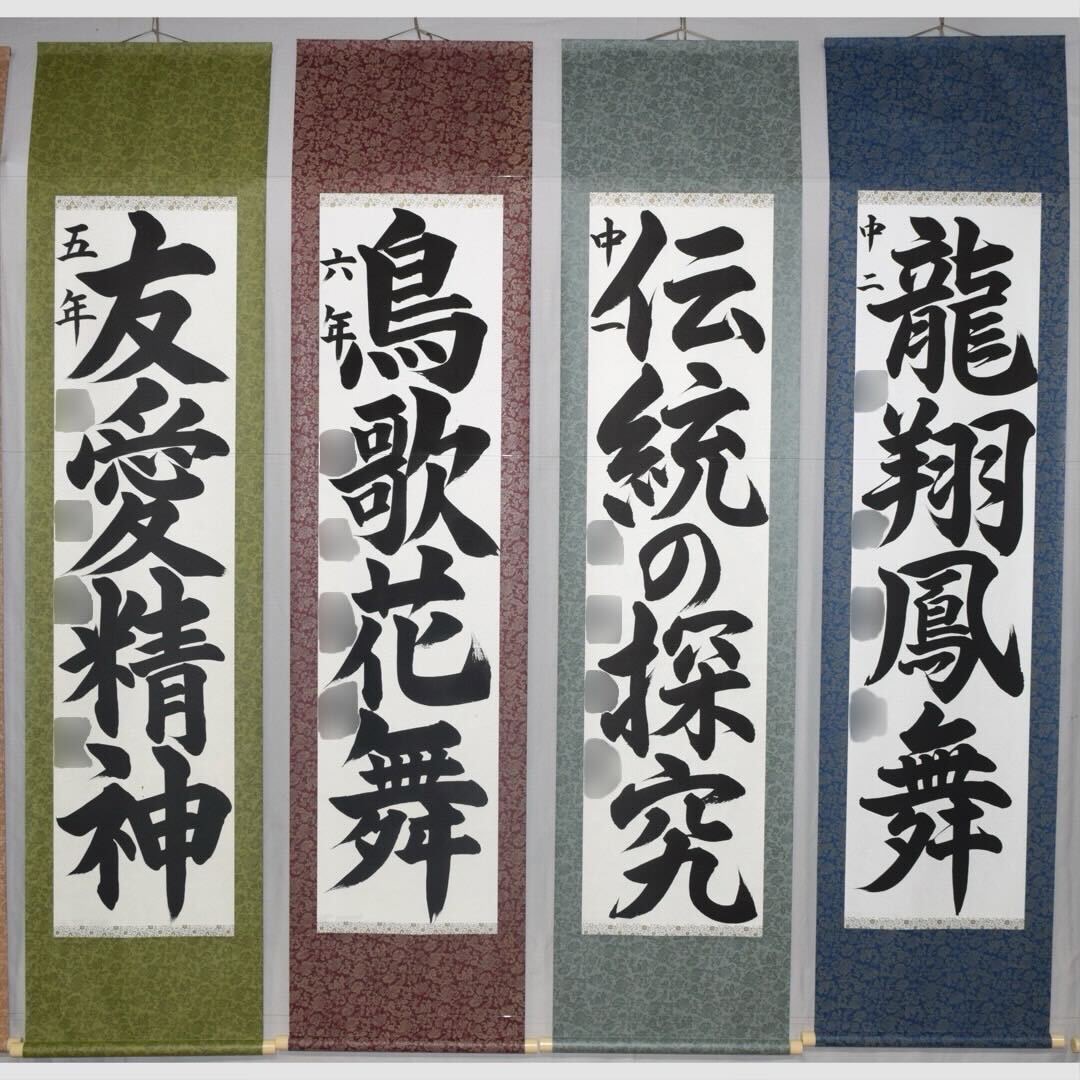 五年
友愛精神
六年
鳥歌花舞
中一
伝統の探究
中二
龍翔鳳舞